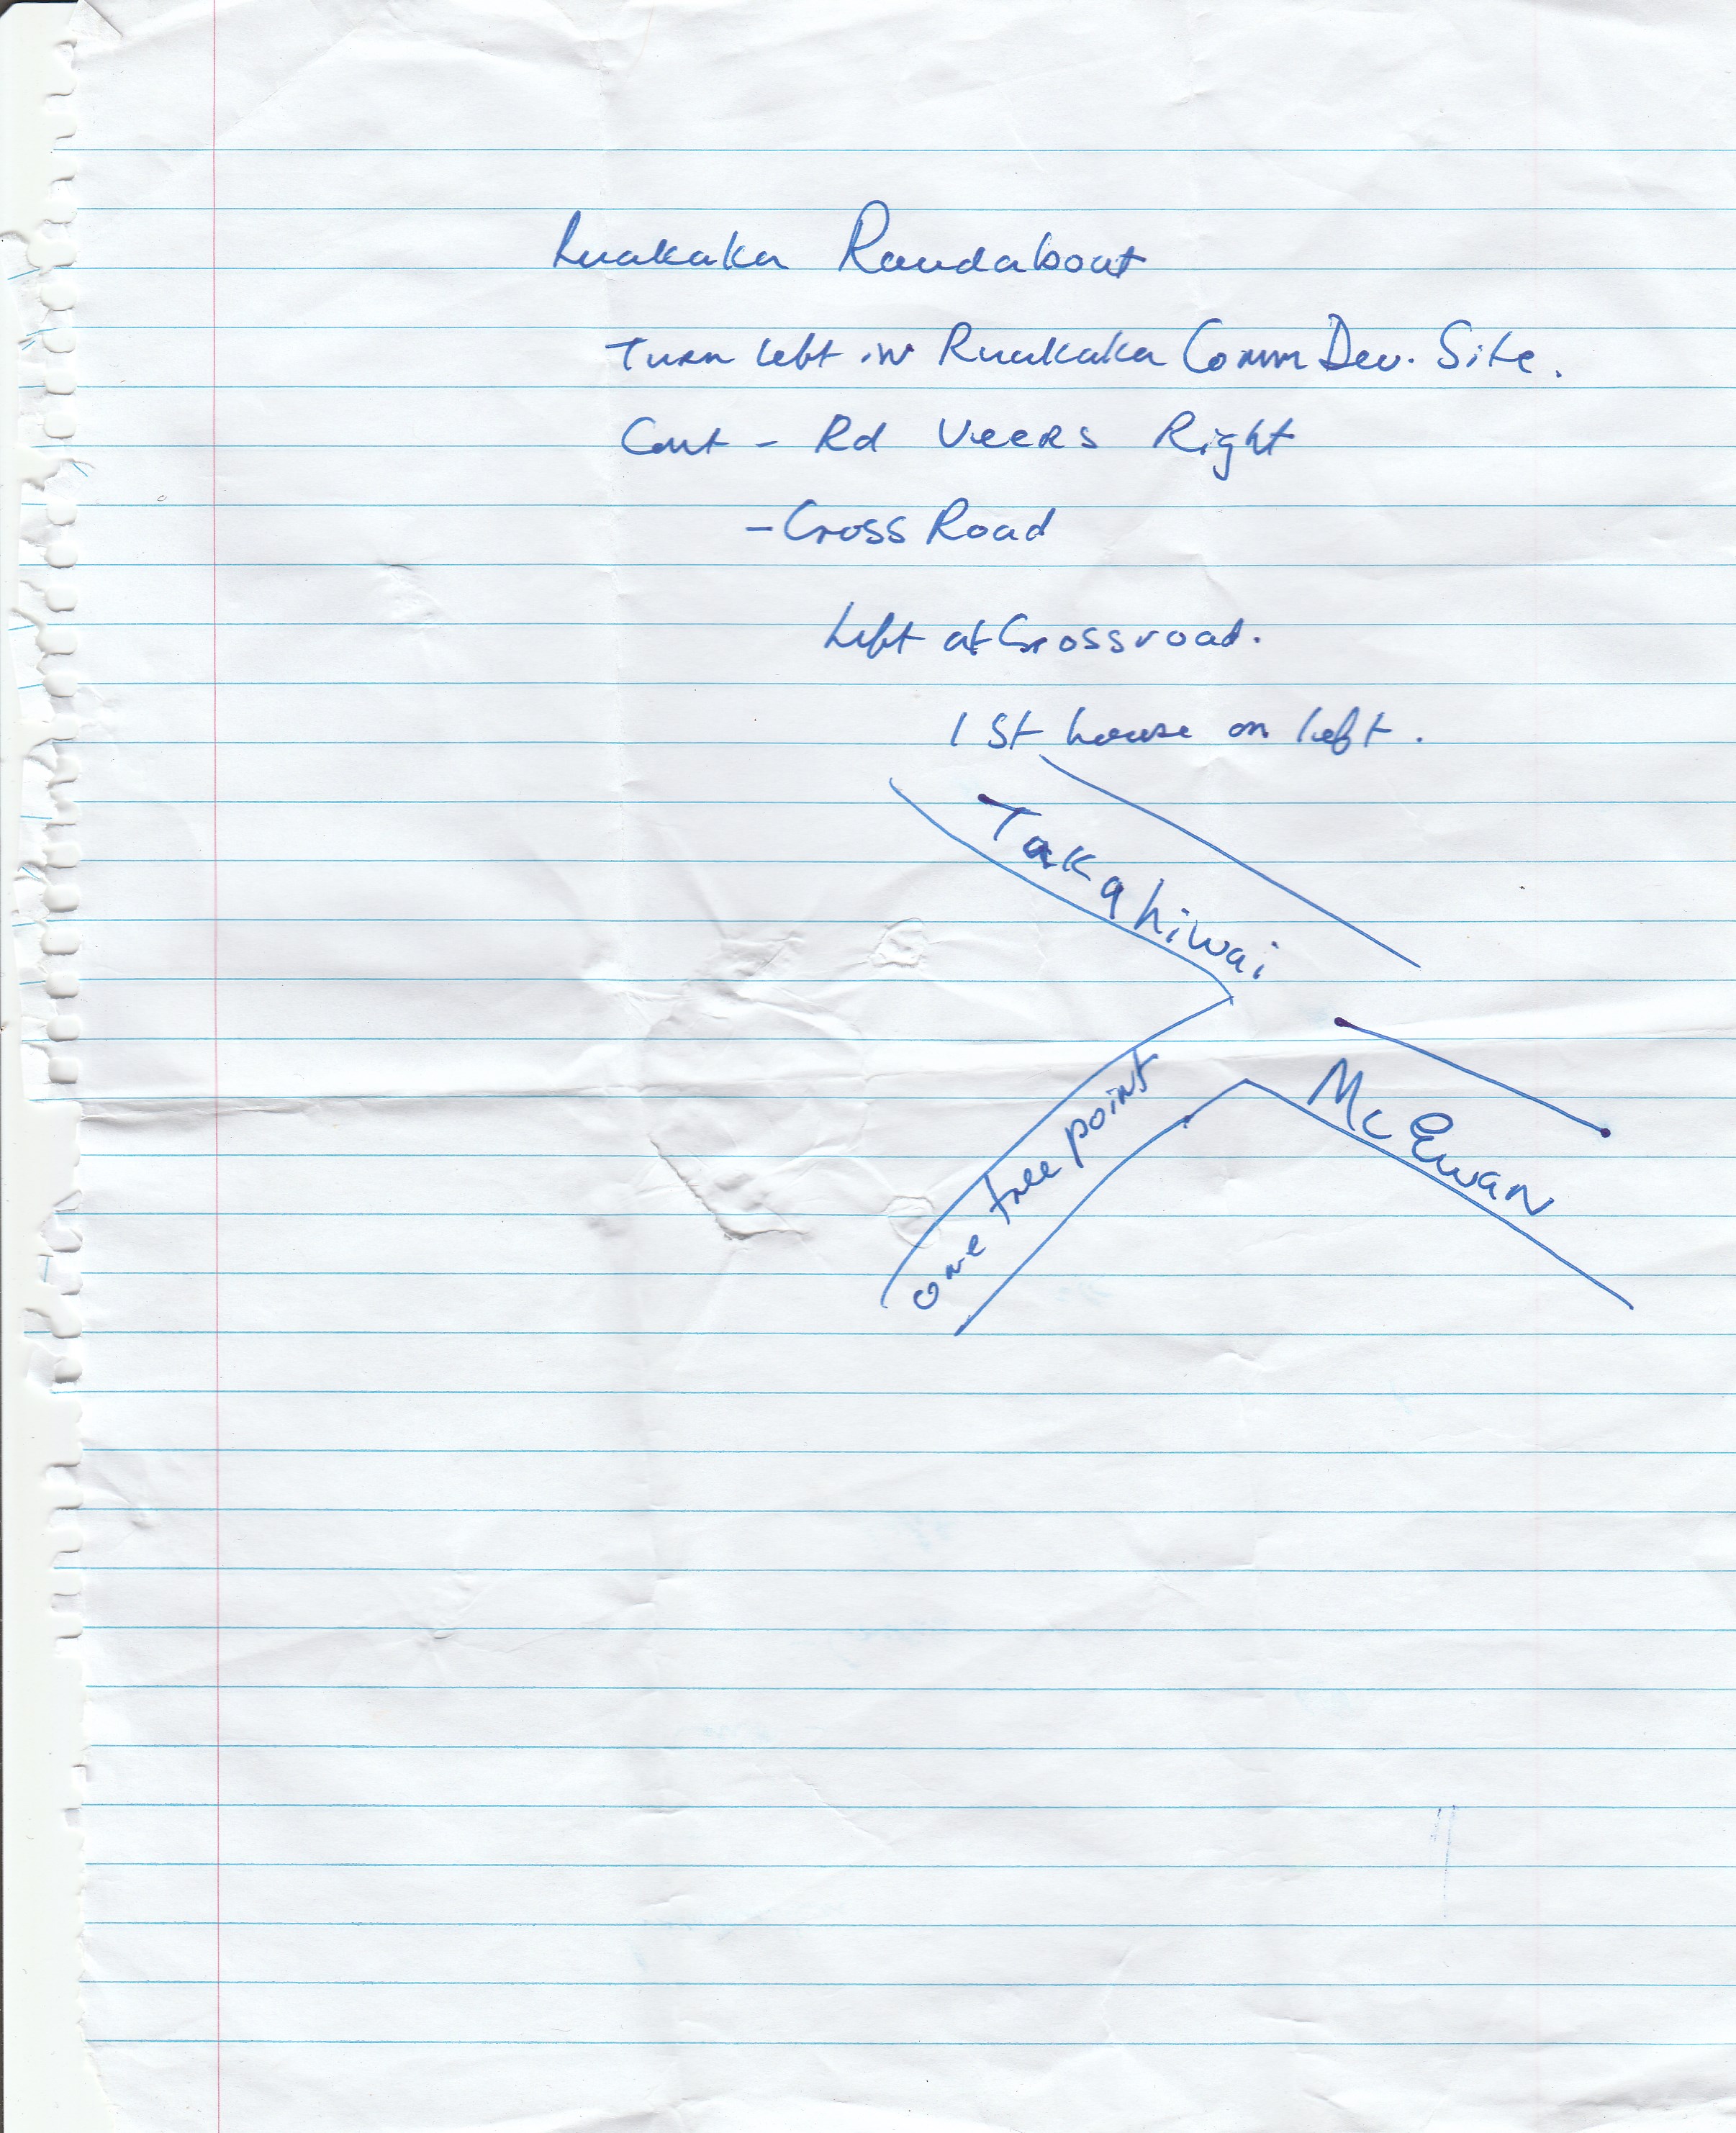 Ruakaka Roundabout
Turn left in Ruakaka Comm Dev. Site.
Cont - Rd Veers Right
- Cross Road
Left at Crossroad.
1st house on left.
Takahiwai
McEwan
one tree point